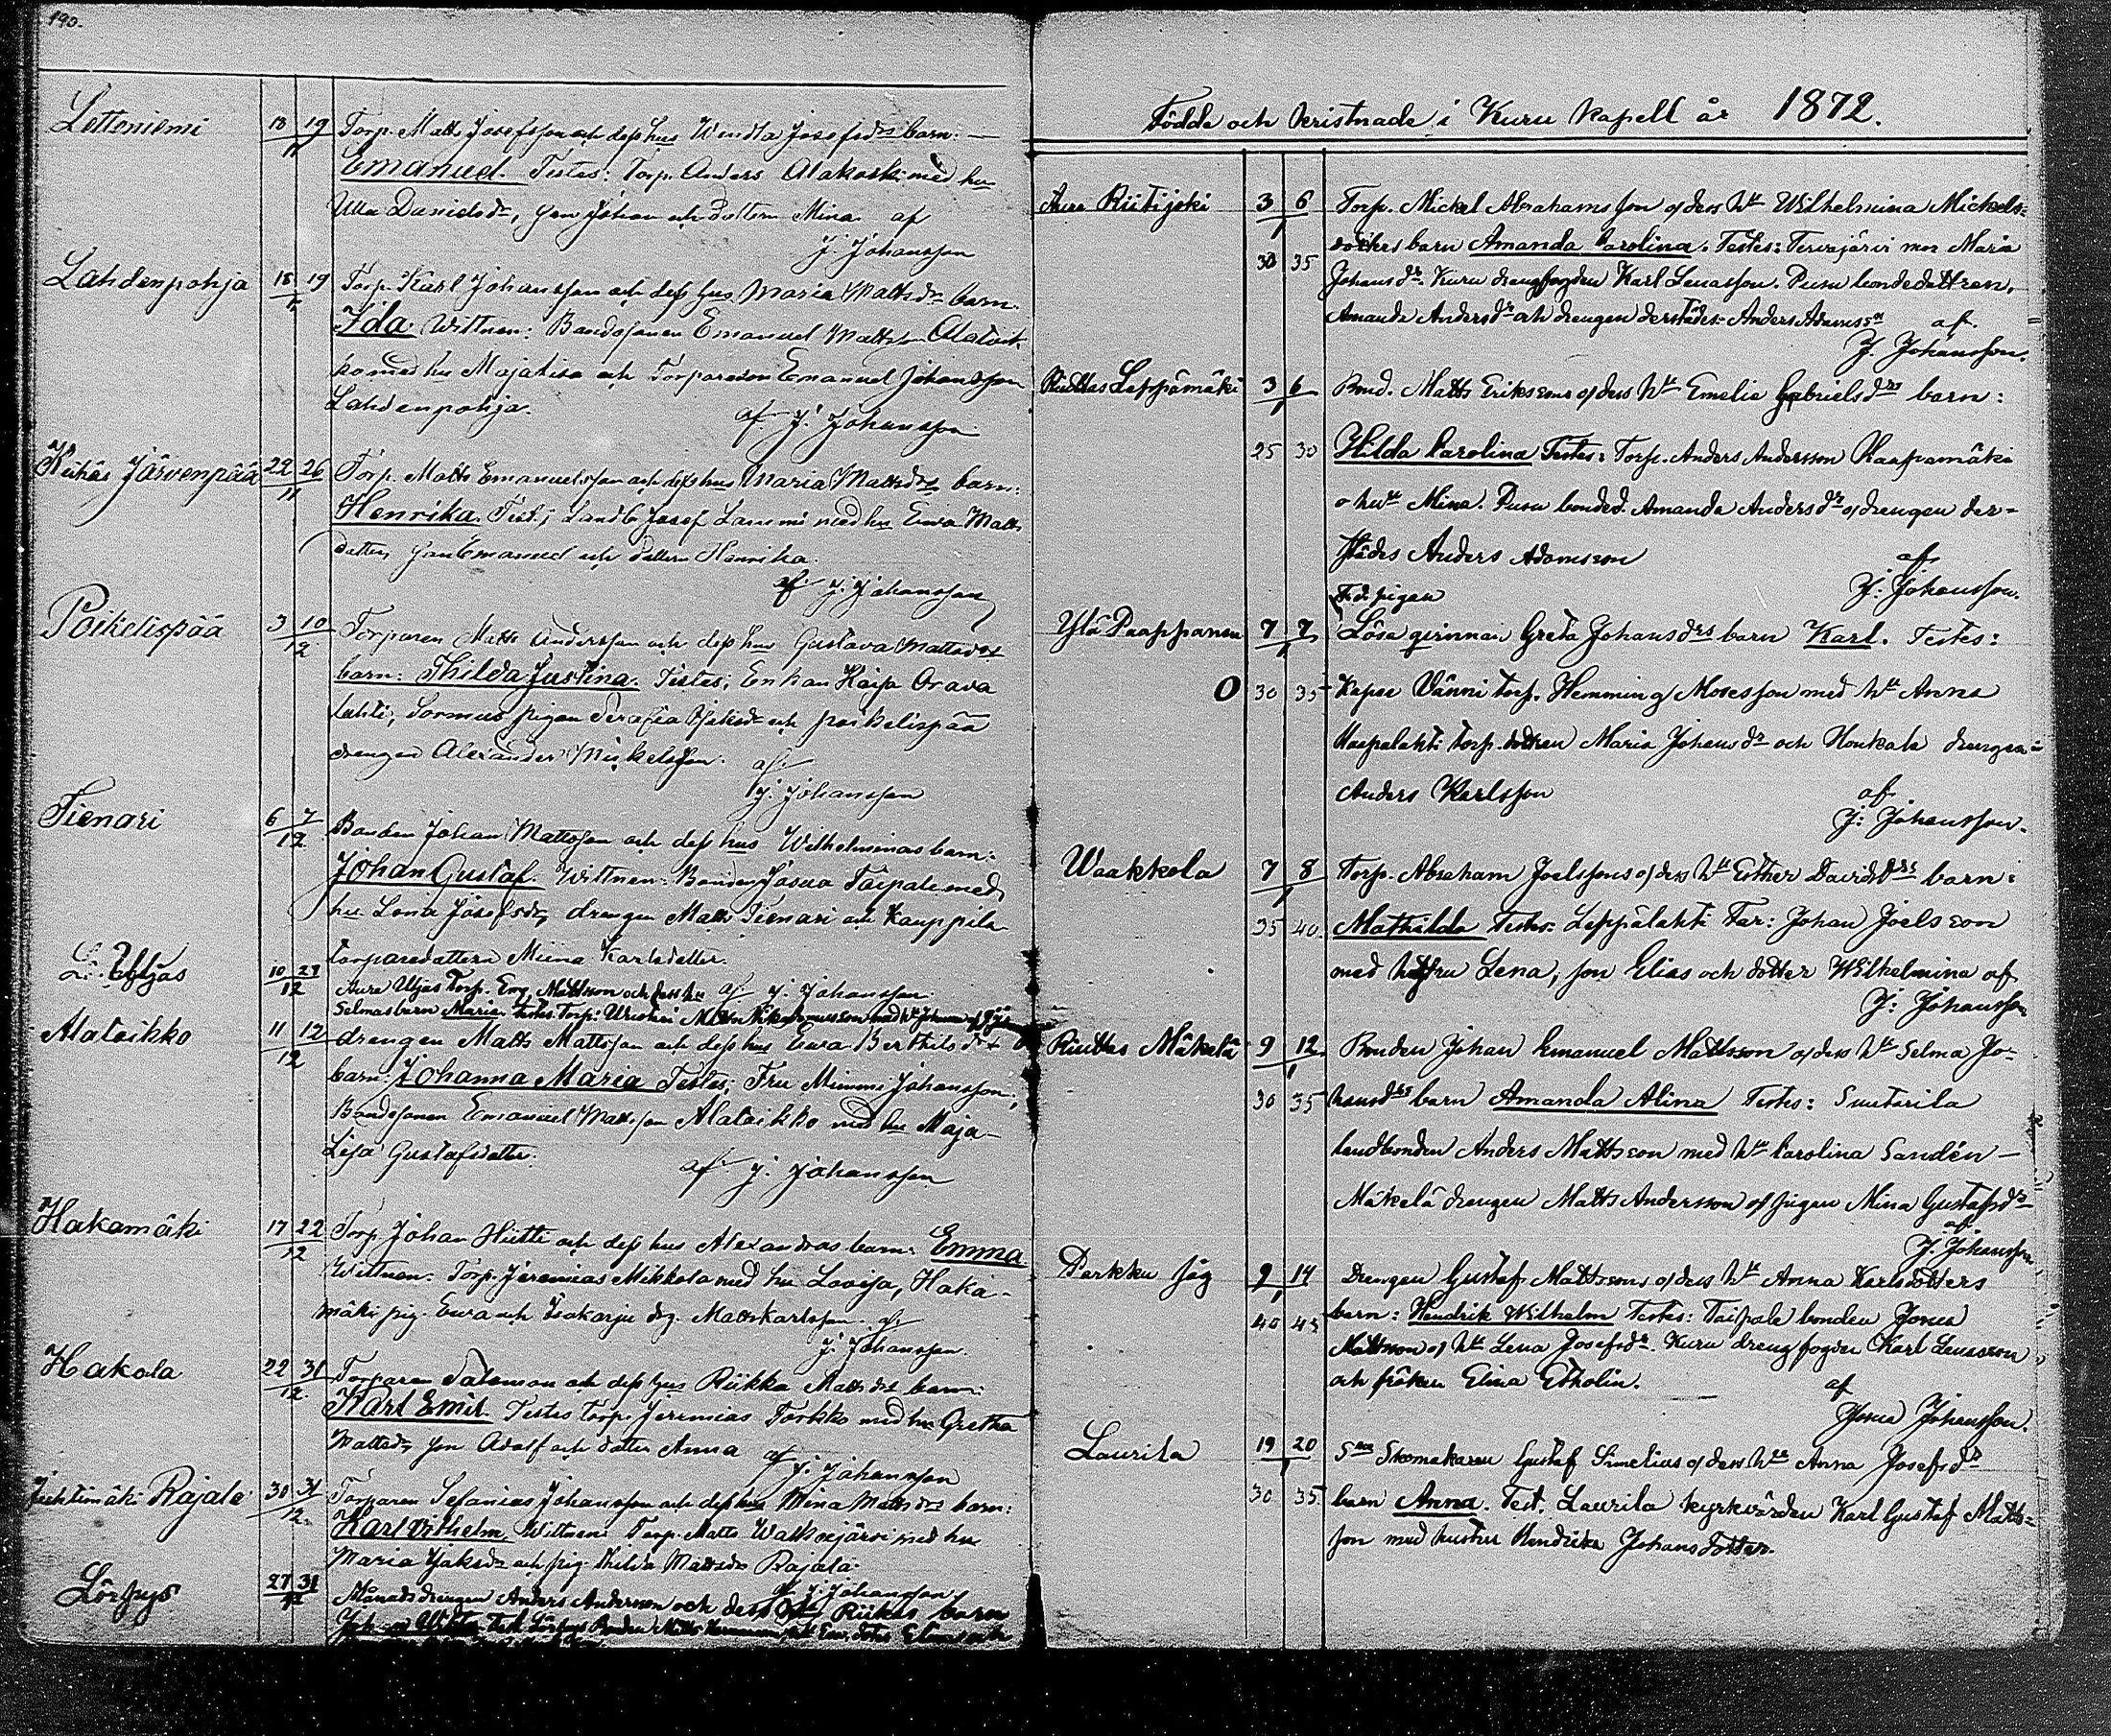 190.
Letteniemi 13 19 Torp. Matts Josefsson och dess hus Wendla Josefsdrs barn:
11 Emanuel. Testes: Torp. Anders Alakoski med hu
Ulla Danielsdr, son Johan och dottern Mina af
J. Johansson
Lahdenpohja 18 19 Torp. Karl Johansson och dess hus Maria Mattsdrs barn.
Ida. Wittnen: Bondesonen Emanuel Mattsson Alatoik-
ko med hu Majalisa och Torpareson Emanuel Johansson
Lahdenpohja. af J. Johansson
Järvenpää 22 26 Torp. Matts Emanuelsson och dess hus Maria Mattsdrs barn:
11 Henrika. Test; Landb Josef Lammi med hu Ewa Matts
dotter, son Emanuel och dottern Henrika.
af J. Johansson
Poikelispää 3 10 Torparen Matts Andersson och dess hus Gustava Mattsdrs
12 barn: Thilda Justina. Testes; Enkan Kaisa Orava
lahti, Sormus pigan Serafia och poikelispää
drengen Alexander Mickelsson. af
J. Johansson
Tienari 6 7 Bonden Johan Mattsson och dess hus Wilhelminas barn:
12 Johan Gustaf. Wittnen: Bonden Josua Taipale med
hu Lena Josefsdr, drengen Matts Tienari och Kauppila
torparedottern Miina Karlsdotter.
af J. Johansson
10 27 Aure Uljas Torp. Em. Mattsson och dess hu
12 Selmas barn Maria. Testes. Torp:
Alatoikko 11 12 drengen Matts Mattsson och dess hus Ewa Berthilsdrs
12 barn: Johanna Maria Testes; Fru Mimmi Johansson;
Bondesonen Emanuel Mattsson Alatoikko med hu Maja-
Lisa Gustafsdotter. af J. Johansson
Hakamäki 17 22 Torp Johan Hütti och dess hus Alexandras barn: Emma
12 Wittnen: Torp. Jeremias Mikkola med hu Lovisa, Haka-
mäki pig. Ewa och Isakarju drg. Matts Karlsson. af
J. Johansson.
Hakola 22 31 Torparen Salomon och dess hus Riikka Mattsdrs barn:
12 Karl Emil. Testes Torp. Jeremias Torkko med hu Gretha
Mattsdr, son Adolf och dotter Anna af
J. Johansson
Rajala 30 31 Torparen Sefanias Johansson och dess hus Mina Mattsdrs barn:
12 Karl Vilhelm Wittnen: Torp. Matts med hu
Maria och pig Thilda Mattsdr Rajala.
af J. Johansson
Lörpys 27 31 Månadsdrengen Anders Andersson och dess hu Riikas barn
Test Lörpys Bonden
Födde och kristnade i Kuru Kapell år 1872.
Aure Riitijoki 3 6 Torp. Mickel Abrahamsson o/dess hu Wilhelmina Mickels=
1 dotters barn Amanda Carolina. Testes: Tervajärvi mor Maria
30 35 Johansdr. Kuru drengfogden Karl Lenasson. Pusu bondedottren,
Amanda Andersdr och drengen derstädes Anders Adamson af.
J. Johansson.
Riuttas Leppämäki 3 6 Bond. Matts Erikssons o/dess hu Emelie Gabrielsdrs barn:
1
25 30 Hilda Carolina Testes: Torp. Anders Andersson Raappamäki
o hu Mina. Pusu bonded. Amanda Andersdr o/drengen der-
städes Anders Adamsson af
J: Johansson.
F.d. pigan
Ylä Paappanen 7 7 Lösa qvinnan Greta Johansdrs barn Karl. Testes:
1
O 30 35 Kapee Vänni torp. Hemming Mosesson med hu Anna
Haapalahti torp. dottren Maria Johansdr och Honkala drengen
Anders Karlsson af
J: Johansson.
Waakkola 7 8 Torp. Abraham Joelssons o/dess hu Esther Davidsdrs barn:
1
35 40 Mathilda Testes: Leppälahti Far: Johan Joelsson
med hustru Lena, son Elias och dotter Wilhelmina af
J: Johansson
Riuttas Mäkelä 9 12 Bonden Johan Emanuel Mattsson o/dess hu Selma Jo-
1
30 35 hansdrs barn Amanda Alina Testes: Suutarila
landbonden Anders Mattsson med hu Carolina Sandén -
Mäkelä drengen Matts Andersson o/pigan Mina Gustafsdr
af
J. Johansson
Parkku 9 14 Drengen Gustaf Mattssons o/dess hu Anna Karlsdotters
1
40 45 barn: Hendrik Wilhelm Testes: Taipale bonden Josua
Mattsson o/ hu Lena Josefsdr. Kuru drengfogden Karl Lenasson
och fröken Elina Etholin. af
Josua Johansson.
Laurila 19 20 Skomakaren Gustaf Simelius o/dess hu Anna Josefsdr
1
30 35 barn Anna. Test. Laurila kyrkvärden Karl Gustaf Matts=
son med hustru Hendrika Johansdotter.